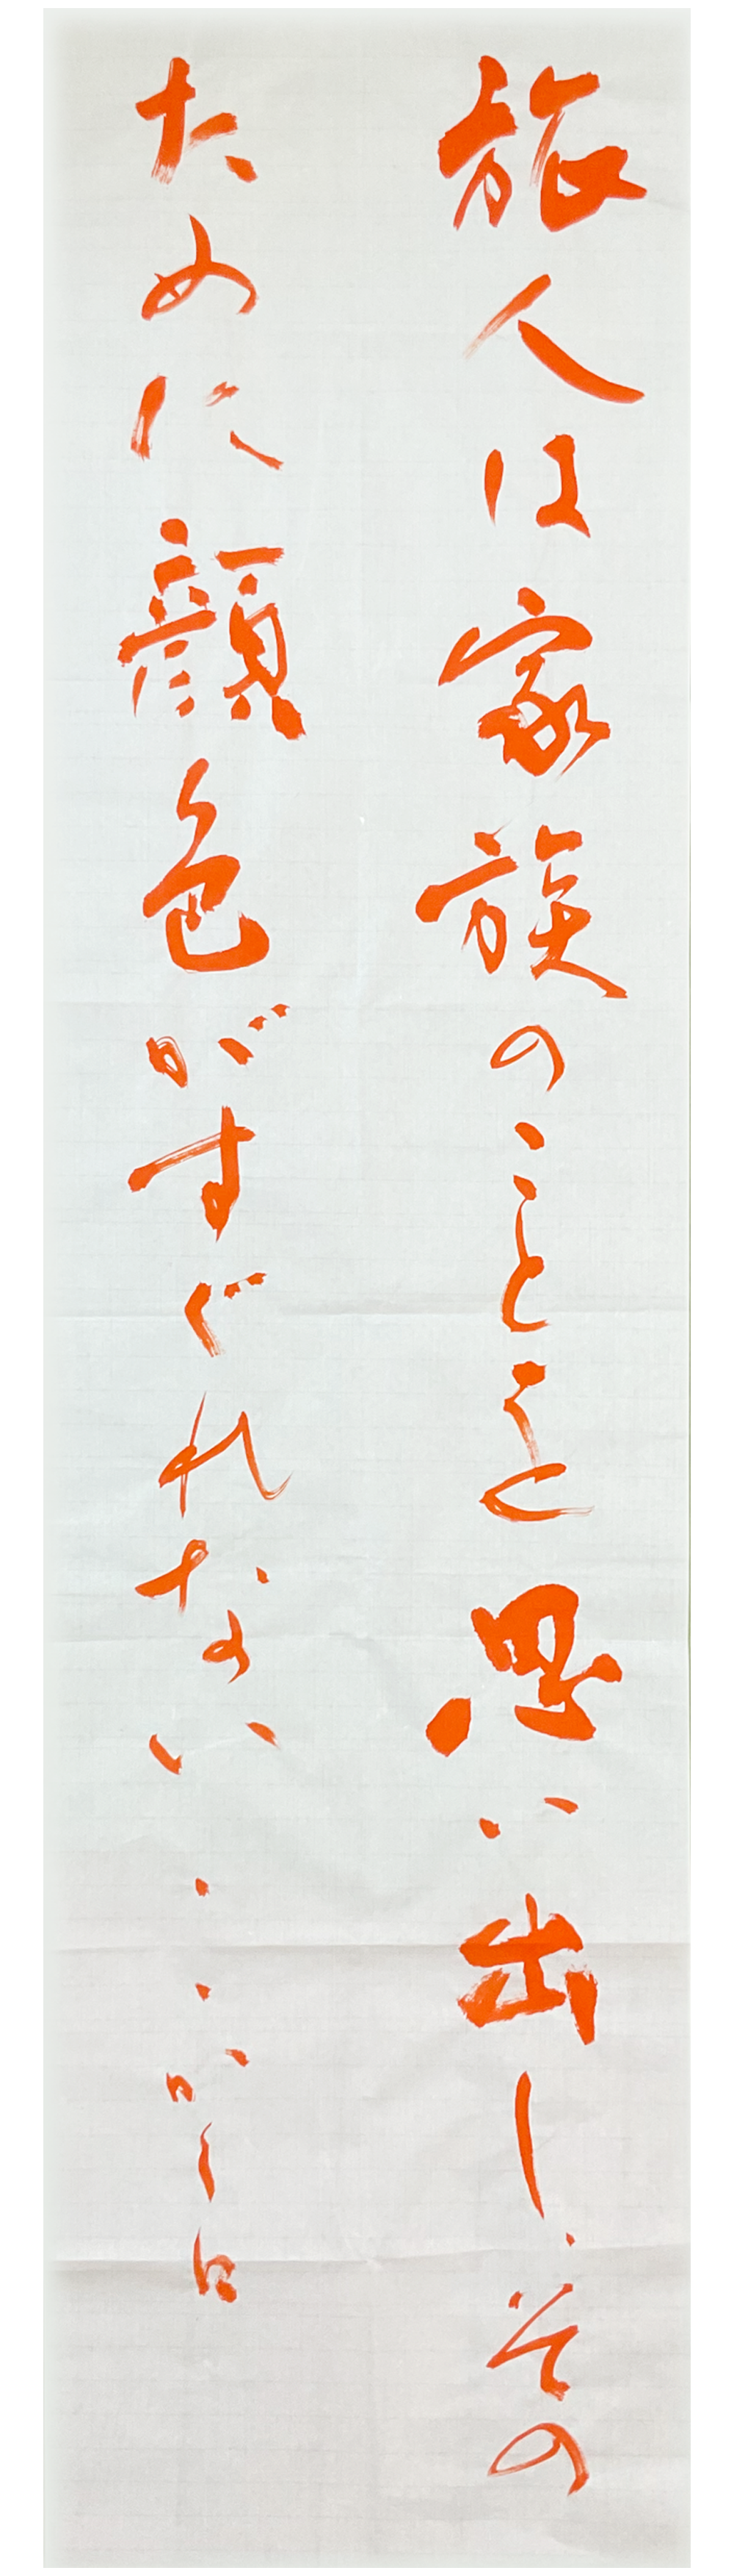 旅人は家族のことを思い出し、その
ために顔色がすぐれない